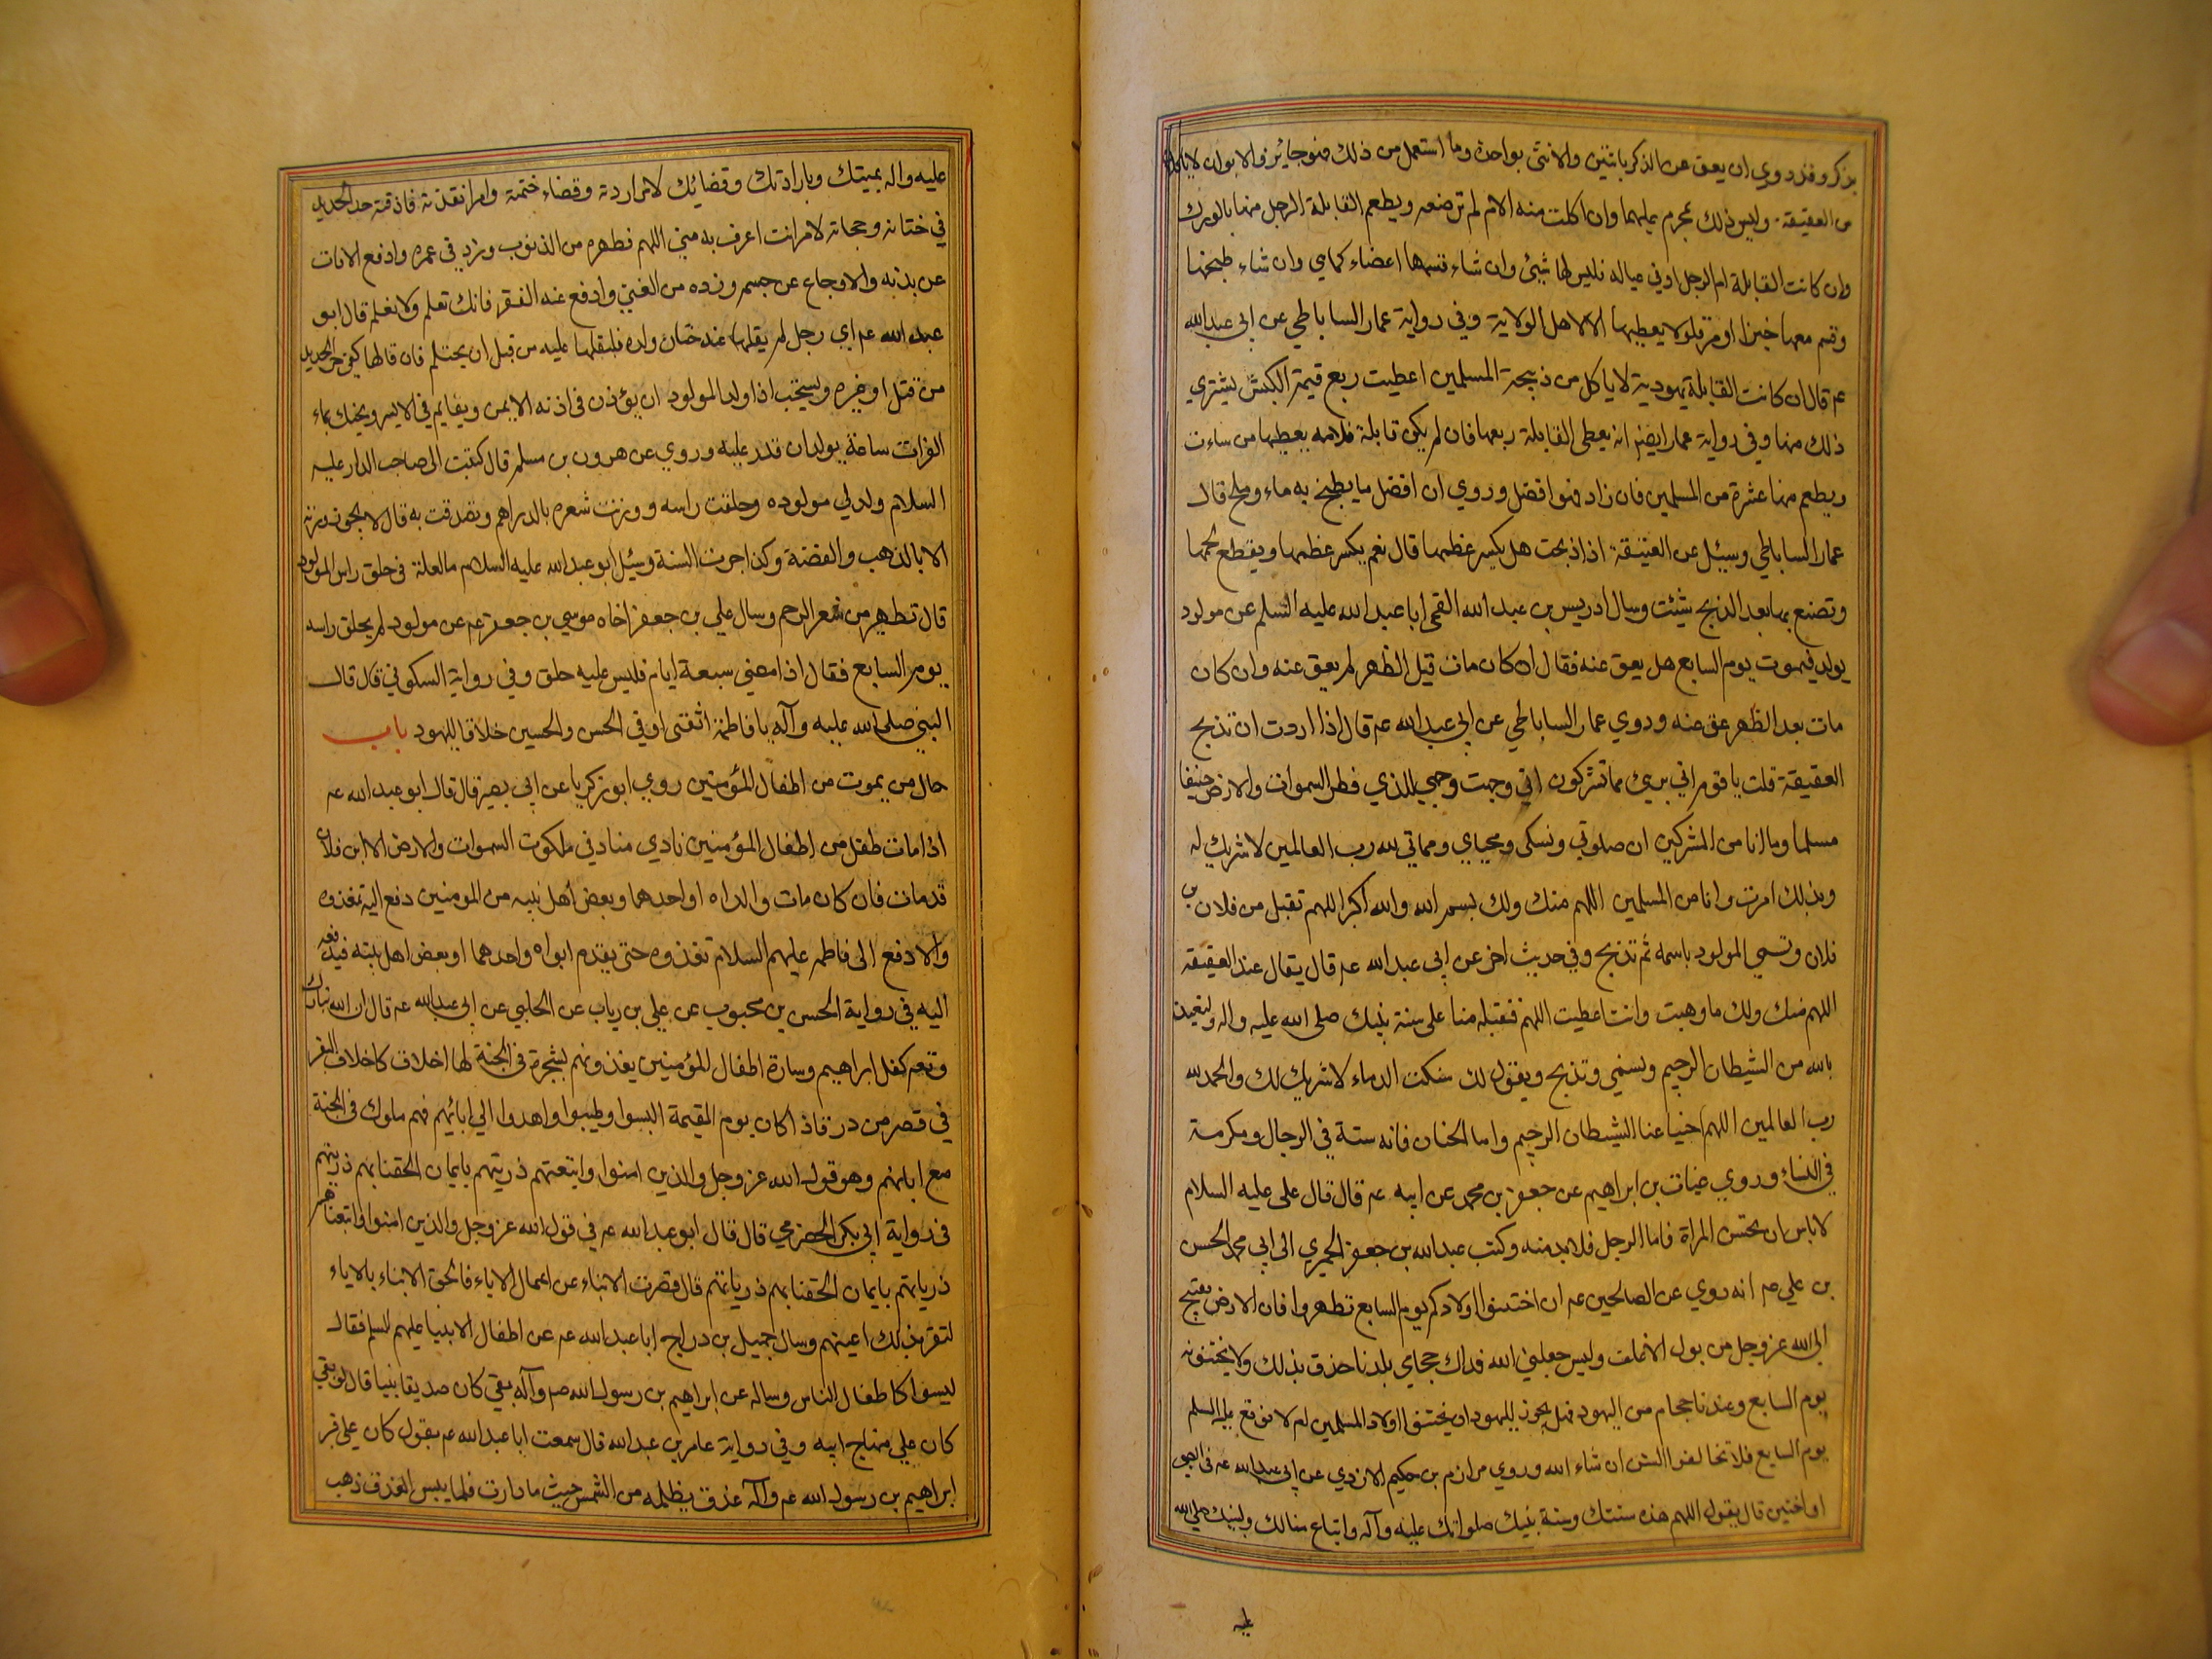 بذكر وقد روي ان يعق عن الذكر باثنين والانثى بواحدة وما استعمل من ذلك فهو جائز والابوان لا ياكلان
من العقيقة وليس ذلك بمحرم عليهما وان اكلت منه الام لم ترضعه ويطعم القابلة الرجل منها بالورك
وان كانت القابلة ام الرجل او في عياله فليس لها شيئ وان شاء قسمها اعضاء كما هي وان شاء طبخها
وقسم معها خبزا او مرقا ولا يعطيها الا لاهل الولاية وفي رواية عمار الساباطي عن ابي عبد الله
عم قال ان كانت القابلة يهودية لا ياكل من ذبيحة المسلمين اعطيت ربع قيمة الكبش يشتري
ذلك منها وفي رواية عمار ايضا انه يعطى القابلة ربعها فان لم يكن قابلة فلامه يعطيها من شاءت
ويطعم منها عشرة من المسلمين فان زاد فهو افضل وروي ان افضل ما يطبخ به ماء وملح قال
عمار الساباطي وسئل عن العقيقة اذا ذبحت هل يكسر عظمها قال نعم يكسر عظمها ويقطع لحمها
وتصنع بها بعد الذبح شئت وسال ادريس بن عبد الله القمي ابا عبد الله عليه السلم عن مولود
يولد فيموت يوم السابع هل يعق عنه فقال ان كان مات قبل الظهر لم يعق عنه وان كان
مات بعد الظهر عق عنه وروي عمار الساباطي عن ابي عبد الله عم قال اذا اردت ان تذبح
العقيقة قلت يا قوم اني بريئ مما تشركون اني وجهت وجهي للذي فطر السموات والارض حنيفا
مسلما وما انا من المشركين ان صلوتي ونسكي ومحياي ومماتي لله رب العالمين لا شريك له
وبذلك امرت وانا من المسلمين اللهم منك ولك بسم الله والله اكبر اللهم تقبل من فلان بن
فلان وتسمي المولود باسمه ثم تذبح وفي حديث اخر عن ابي عبد الله عم قال يقال عند العقيقة
اللهم منك ولك ما وهبت وانت اعطيت اللهم فتقبله منا على سنة نبيك صلى الله عليه واله ونستعيذ
بالله من الشيطان الرجيم وتسمي وتذبح ويقول لك سفكت الدماء لا شريك لك والحمد لله
رب العالمين اللهم اخسا عنا الشيطان الرجيم واما الختان فانه سنة في الرجال ومكرمة
في النساء وروي غياث بن ابراهيم عن جعفر بن محمد عن ابيه عم قال قال علي عليه السلام
لا باس ان تختتن المراة فاما الرجل فلا بد منه وكتب عبد الله بن جعفر الحميري الى ابي محمد الحسن
بن علي عم انه روي عن الصالحين عم ان اختتنوا اولادكم يوم السابع تطهروا فان الارض تضج
الى الله عز وجل من بول الاغلف وليس جعلني الله فداك حجام بلدنا حذق بذلك ولا يختنونه
يوم السابع وعندنا حجام من اليهود فهل يجوز لليهود ان يختنوا اولاد المسلمين ام لا فوقع عليه السلم
يوم السابع فلا تخالفوا السنن ان شاء الله وروي مرازم بن حكيم الازدي عن ابي عبد الله عم في الصبي
اذا ختن قال يقول اللهم هذه سنتك وسنة نبيك صلواتك عليه وآله واتباع منا لك ولنبيك صلى الله
عليه
عليه واله بمشيتك وبارادتك وقضائك لامر اردته وقضاء حتمته وامر انفذته فاذقته حد الحديد
في ختانه وحجامته لامر انت اعرف به مني اللهم فطهره من الذنوب وزد في عمره وادفع الافات
عن بدنه والاوجاع عن جسمه وزده من الغنى وادفع عنه الفقر فانك تعلم ولا نعلم قال ابو
عبد الله عم اي رجل لم يقلها عند ختان ولده فليقلها عليه من قبل ان يحتلم فان قالها كفي حر الحديد
من قتل او غيره ويستحب اذا ولد المولود ان يؤذن في اذنه الايمن ويقام في الايسر ويحنك بماء
الفرات ساعة يولد ان قدر عليه وروي عن هرون بن مسلم قال كتبت الى صاحب الدار عليه
السلام ولد لي مولود وحلقت راسه ووزنت شعره بالدراهم وتصدقت به قال لا يجوز وزنه
الا بالذهب والفضة وكذا جرت السنة وسئل ابو عبد الله عليه السلام ما العلة في حلق راس المولود
قال تطهير من شعر الرحم وسال علي بن جعفر اخاه موسى بن جعفر عم عن مولود لم يحلق راسه
يوم السابع فقال اذا مضى سبعة ايام فليس عليه حلق وفي رواية السكوني قال قال
النبي صلى الله عليه وآله يا فاطمة اثقبي اذني الحسن والحسين خلافا لليهود باب
حال من يموت من اطفال المؤمنين روي ابو زكريا عن ابي بصير قال قال ابو عبد الله عم
اذا مات طفل من اطفال المؤمنين نادي مناد في ملكوت السموات والارض الا ان فلان
قد مات فان كان مات والداه او احدهما وبعض اهل بيته من المومنين دفع اليه تغذوه
والا دفع الى فاطمه عليهم السلام تغذوه حتى يقدم ابواه واحدهما او بعض اهل بيته فيدفعه
اليه في رواية الحسن بن محبوب عن علي بن رياب عن الحلبي عن ابي عبد الله عم قال ان الله تبارك
وتعم كفل ابراهيم وسارة اطفال المؤمنين يغذونهم بشجرة في الجنة لها اخلاف كاخلاف البقر
في قصر من در فاذا كان يوم القيمة البسوا وطيبوا واهدوا الى ابائهم فهم ملوك في الجنة
مع ابائهم وهو قول الله عز وجل والذين امنوا واتبعتهم ذريتهم بايمان الحقنا بهم ذريتهم
في رواية ابي بكر الحضرمي قال قال ابو عبد الله عم في قول الله عز وجل والذين امنوا واتبعناهم
ذرياتهم بايمان الحقنا بهم ذرياتهم قال قصرت الابناء عن اعمال الاباء فالحق الابناء بالاباء
لتقر بذلك اعينهم وسال جميل بن دراج ابا عبد الله عم عن اطفال الانبيا عليهم السلم فقال
ليسوا كاطفال الناس وساله عن ابراهيم بن رسول الله صم وآله بقي كان صديقا نبيا قال لو بقي
كان على منهاج ابيه وفي رواية عامر بن عبد الله قال سمعت ابا عبد الله عم يقول كان على قبر
ابراهيم بن رسول الله عم وآله عذق يظلله من الشمس حيث ما دارت فلما يبس العذق ذهب